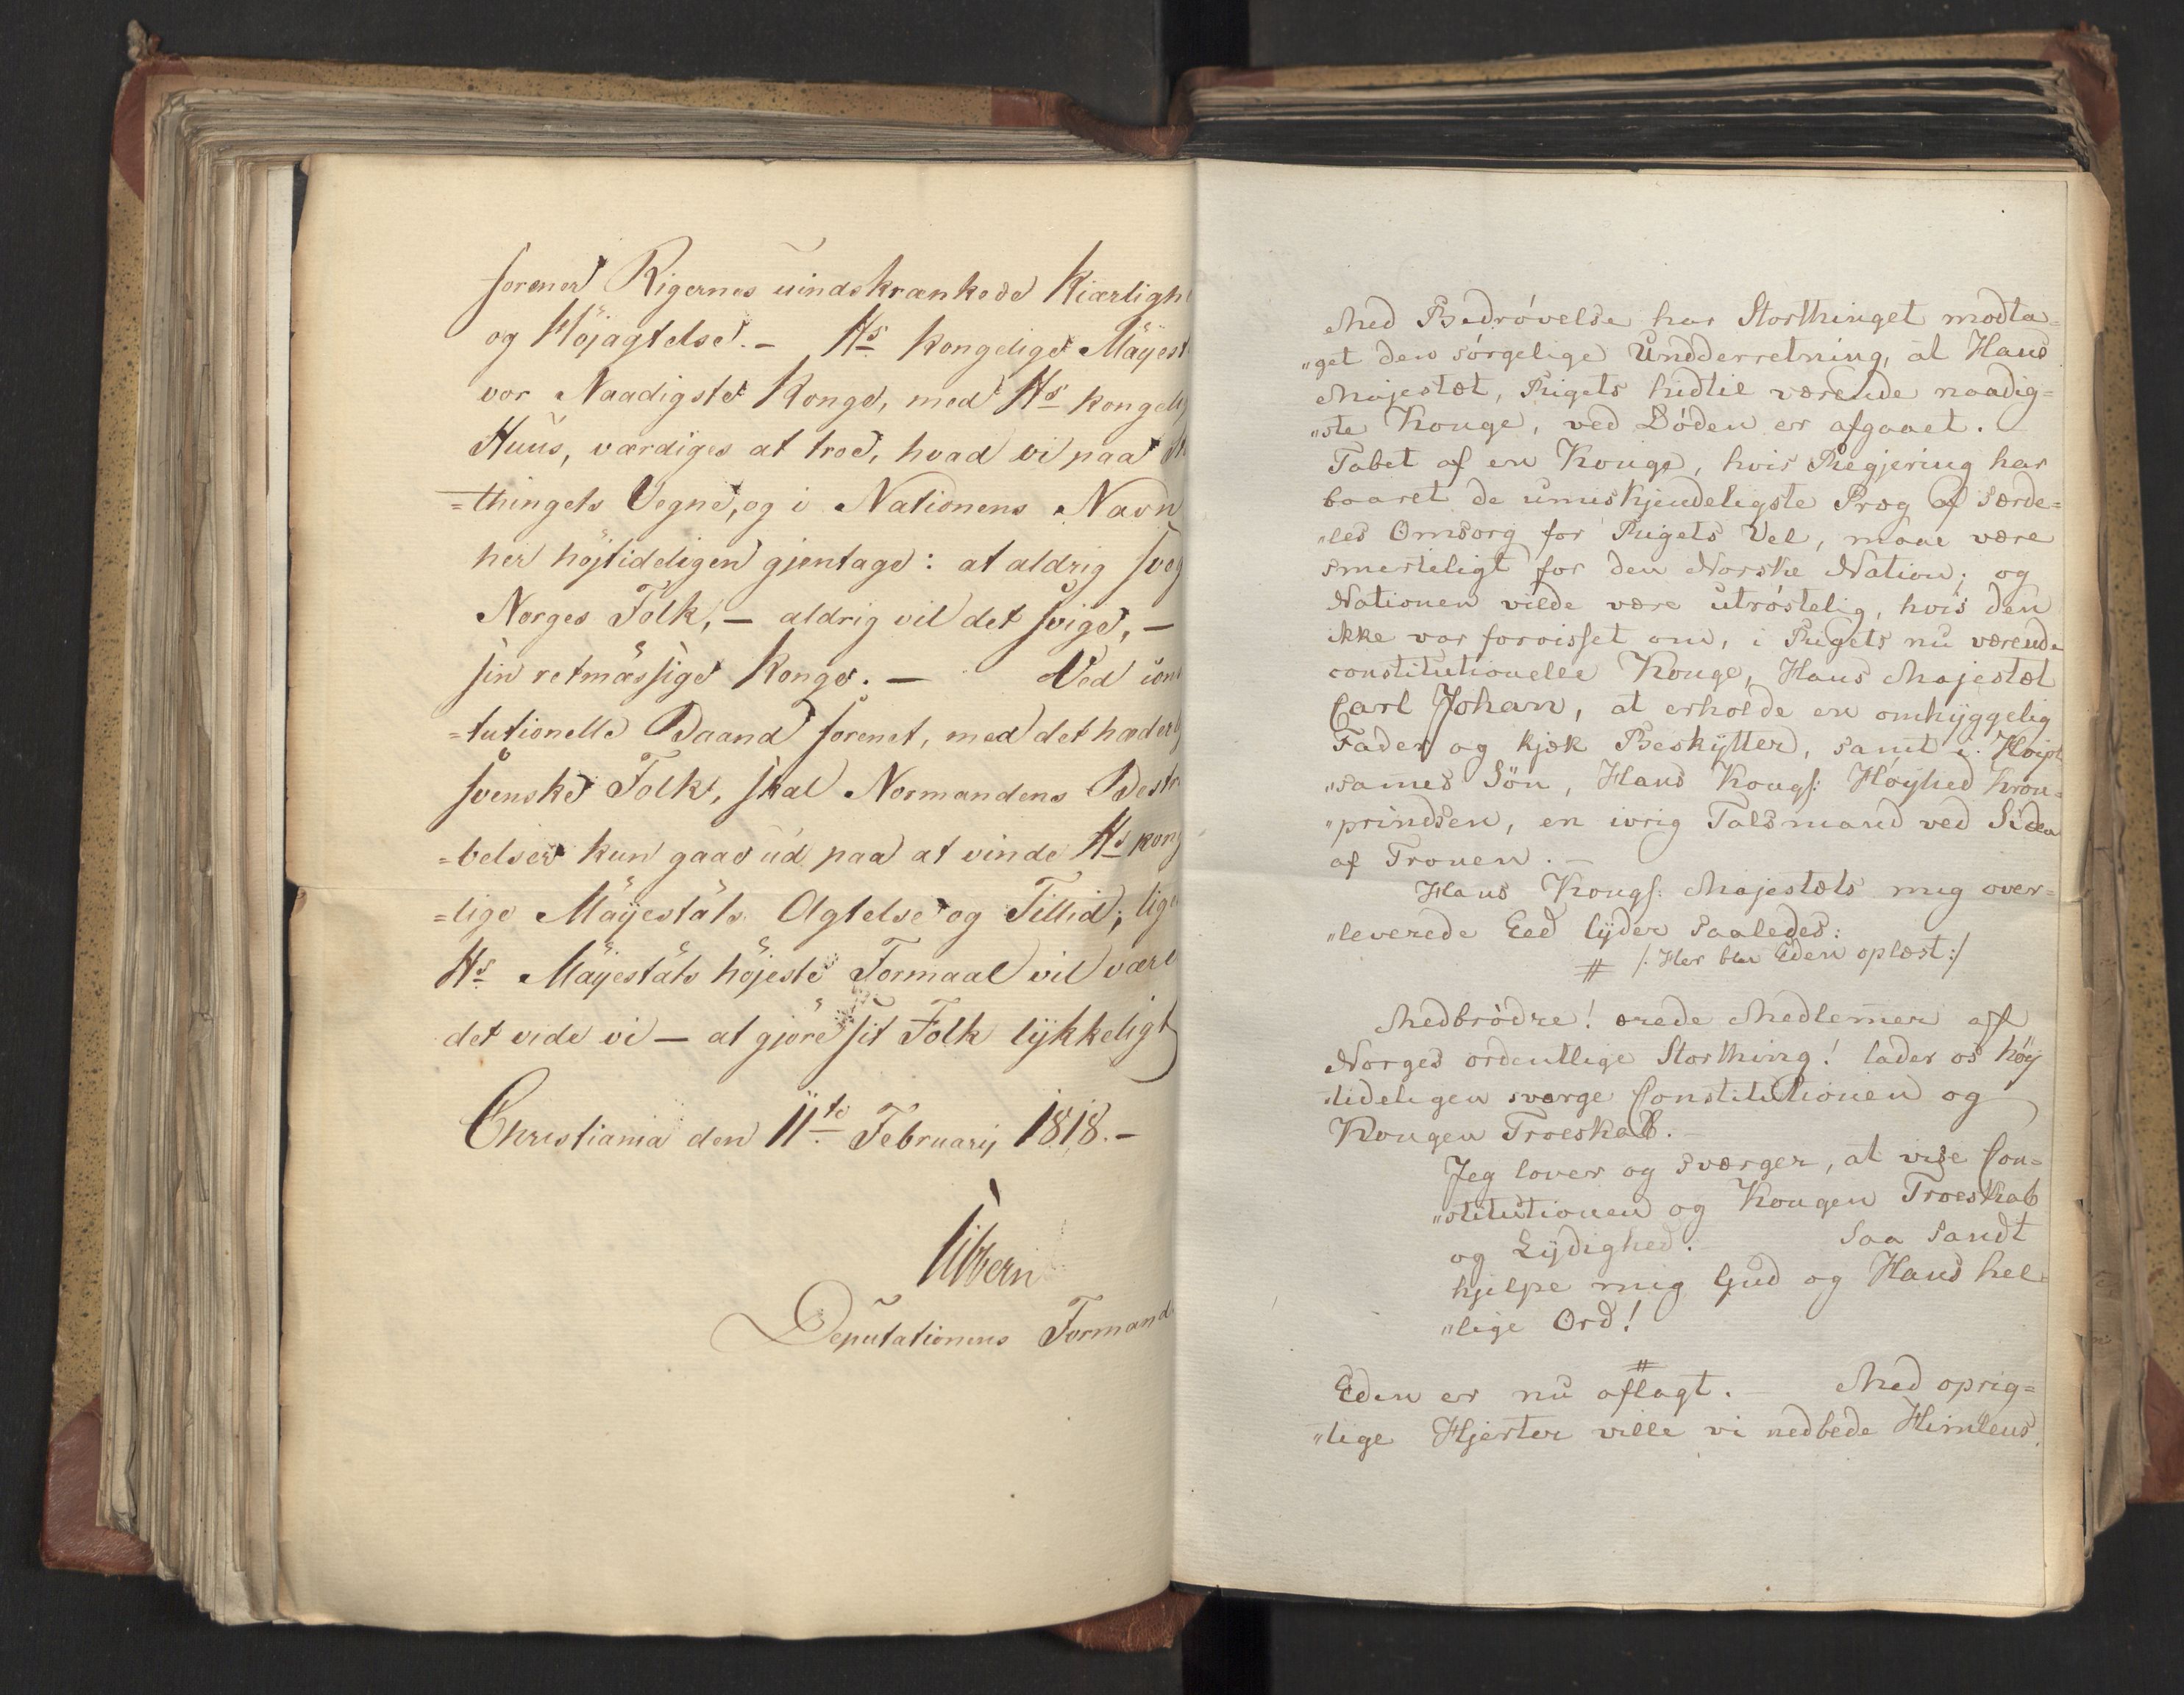 forener Rigernes uindskrænkede Kiærligh
og Höjagtelse. – Hs Kongelige Mäyest
vor Naadigste Konge, med Hs kongelig
Huus, værdiges at troe, hvad vi paa
=thingets Vegne, og i Nationens Navn
her höjtideligen gjentage: at aldrig sveg
Norges Folk, – aldrig vil det svige, –
sin retmæssige Konge. – Ved
=tutionelle Baand forenet, med det hæderlig
svenske Folk, skal Normandens Bestr
=belser kun gaae ud paa at vinde Hs kong
=lige Mäyestäts Agtelse og Tillid; lig
Hs Mäyestäts höjeste Formaal vil være
det vide vi – at gjöre sit Folk lykkeligt
Christiania den 11te Februarij 1818. –
Sibbern
Deputationens Formand
Med Bedrövelse har Storthinget modta=
"get den sörgelige Undderretning, at Hans
Majestæt, Rigets hidtil værende naadig=
"ste Konge, ved Döden er afgaaet. –
Tabet af en Konge, hvis Regjering har
baaret de umiskjendeligste Præg af Særde=
"les Omsorg for Rigets Vel, maae være
smerteligt for den Norske Nation; og
Nationen vilde være utröstelig, hvis den
ikke var forvisset om, i Rigets nu værende
constitutionelle Konge, Hans Majestæt
Carl Johan, at erholde en omhyggelig
Fader og kjæk Beskytter, samt i Höist
"sammes Sön, Hans Kongl: Höyhed Kron=
"prindsen, en ivrig Talsmand ved Siden
af Tronen. –
Hans Kongl: Majestæts mig over=
"leverede Eed lyder saaledes:
# /: Her blev Eden oplæst :/
Medbrödre! ærede Medlemmer af
Norges ordentlige Storthing! lader os höy
"tideligen sværge Constitutionen og
Kongen Troeskab. –
Jeg lover og sværger, at vise Con=
"stitutionen og Kongen Troeskab
og Lydighed. Saa Sandt
hjelpe mig Gud og Hans hel=
"lige Ord!
#
Eden er nu aflagt. – Med oprig=
"tige Hjerter ville vi nedbede Himlens